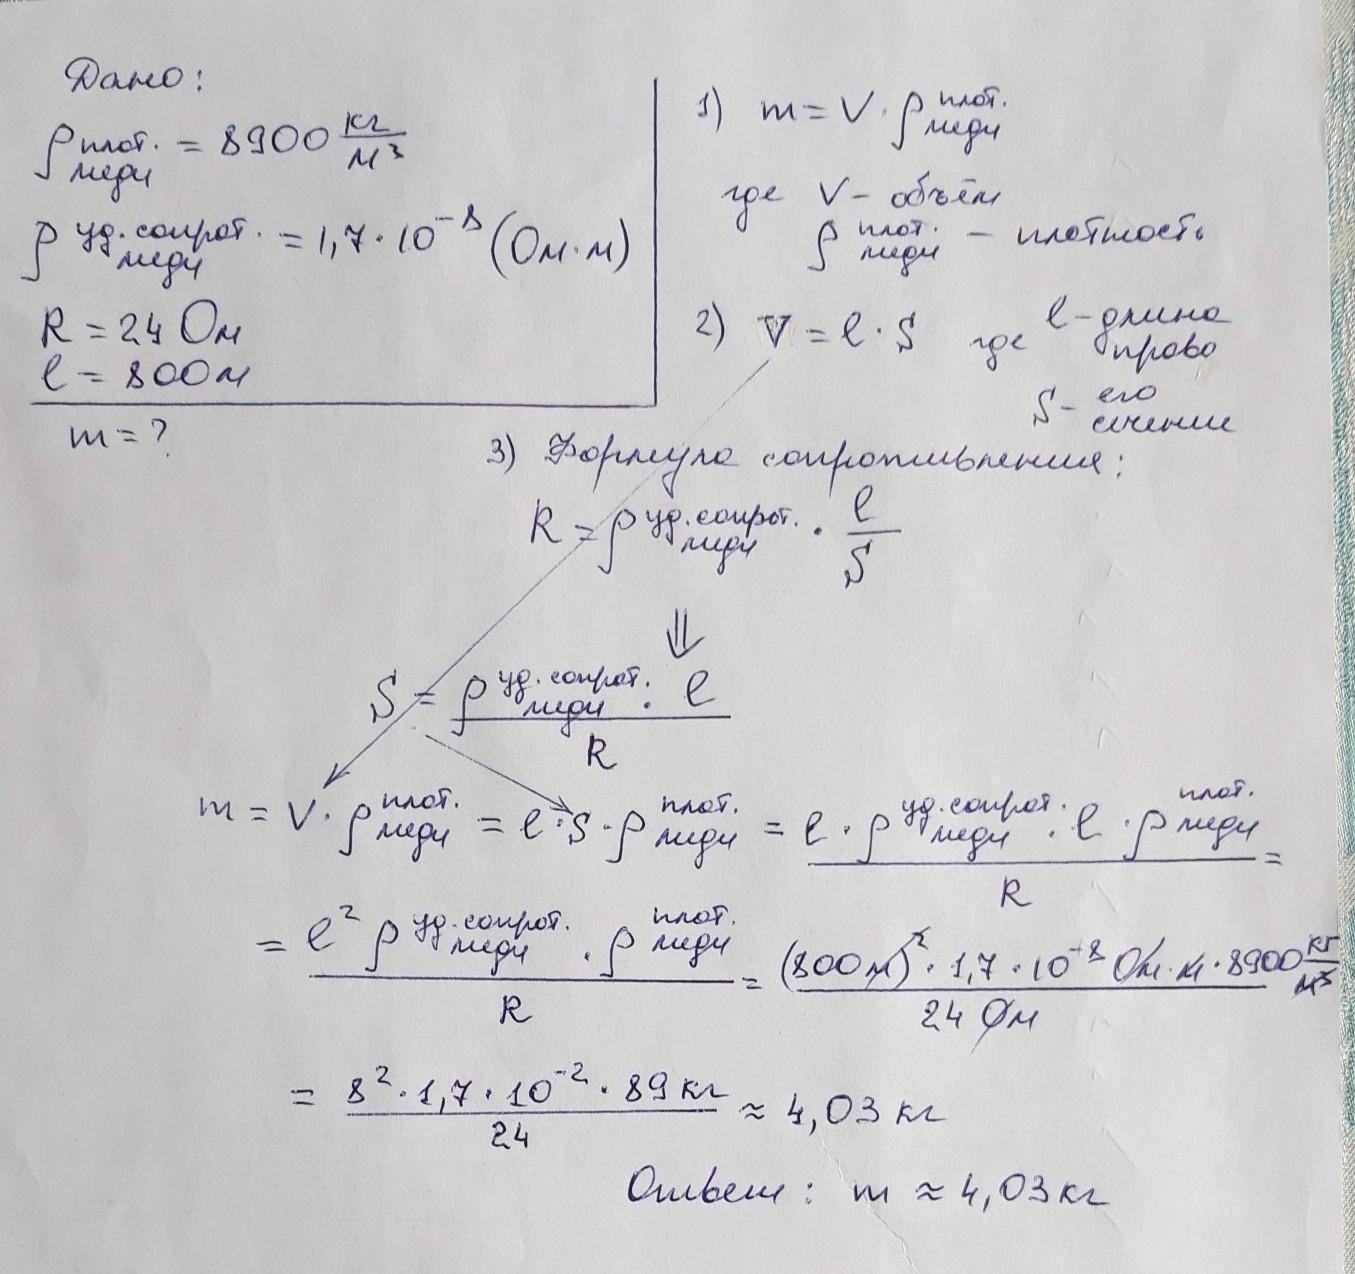 Дано:
ρ плот. меди = 8900 кг/м³
ρ уд. сопрот. меди = 1,7·10⁻⁸ (Ом·м)
R = 24 Ом
l = 800 м
m = ?
1) m = V · ρ плот. меди
где V – объём
ρ плот. меди – плотность
2) V = l · S где l – длина прово
S – его сечение
3) Формула сопротивления:
R = ρ уд. сопрот. меди · l/S
⇓
S = ρ уд. сопрот. меди · l / R
m = V · ρ плот. меди = l · S · ρ плот. меди = l · ρ уд. сопрот. меди · l · ρ плот. меди / R =
= l² ρ уд. сопрот. меди · ρ плот. меди / R = (800 м)² · 1,7 · 10⁻⁸ Ом · м · 8900 кг/м³ / 24 Ом
= 8² · 1,7 · 10⁻² · 89 кг / 24 ≈ 4,03 кг
Ответ: m ≈ 4,03 кг